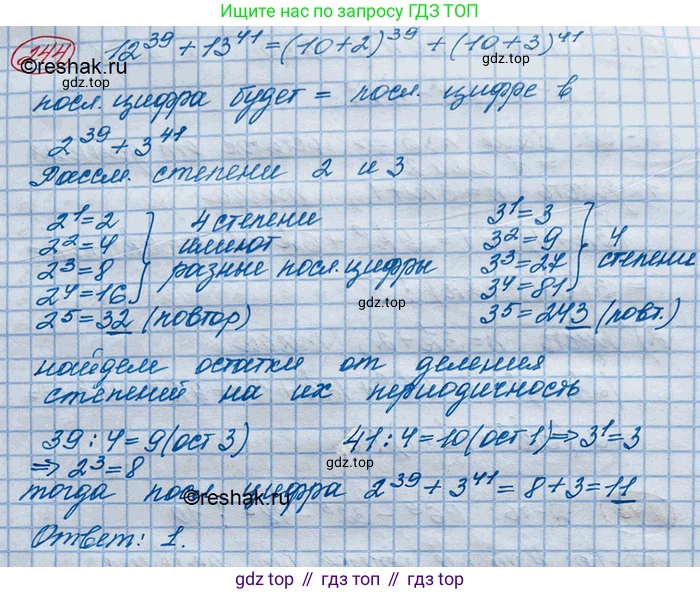 Ищи на сайте ГДЗ ТОП
144 12^39 + 13^41 = (10+2)^39 + (10+3)^41
©reshak.ru
gdz.top gdz.top
посл. цифра будет = посл. цифре в
2^39 + 3^41
Рассм. степени 2 и 3
2^1=2 } 4 степени 3^1=3
2^2=4 имеют 3^2=9 } 4
2^3=8 разные посл. цифры 3^3=27 степени
2^4=16 3^4=81
gdz.top
2^5=32 (повтор) 3^5=243 (повт.)
найдем остатки от деления
степеней на их периодичность
39 : 4 = 9 (ост 3) 41 : 4 = 10 (ост 1) ⇒ 3^1=3
⇒ 2^3=8
тогда посл. цифра 2^39 + 3^41 = 8+3=11
©reshak.ru
gdz.top gdz.top
Ответ: 1.
gdz top // гдз топ // gdz.top